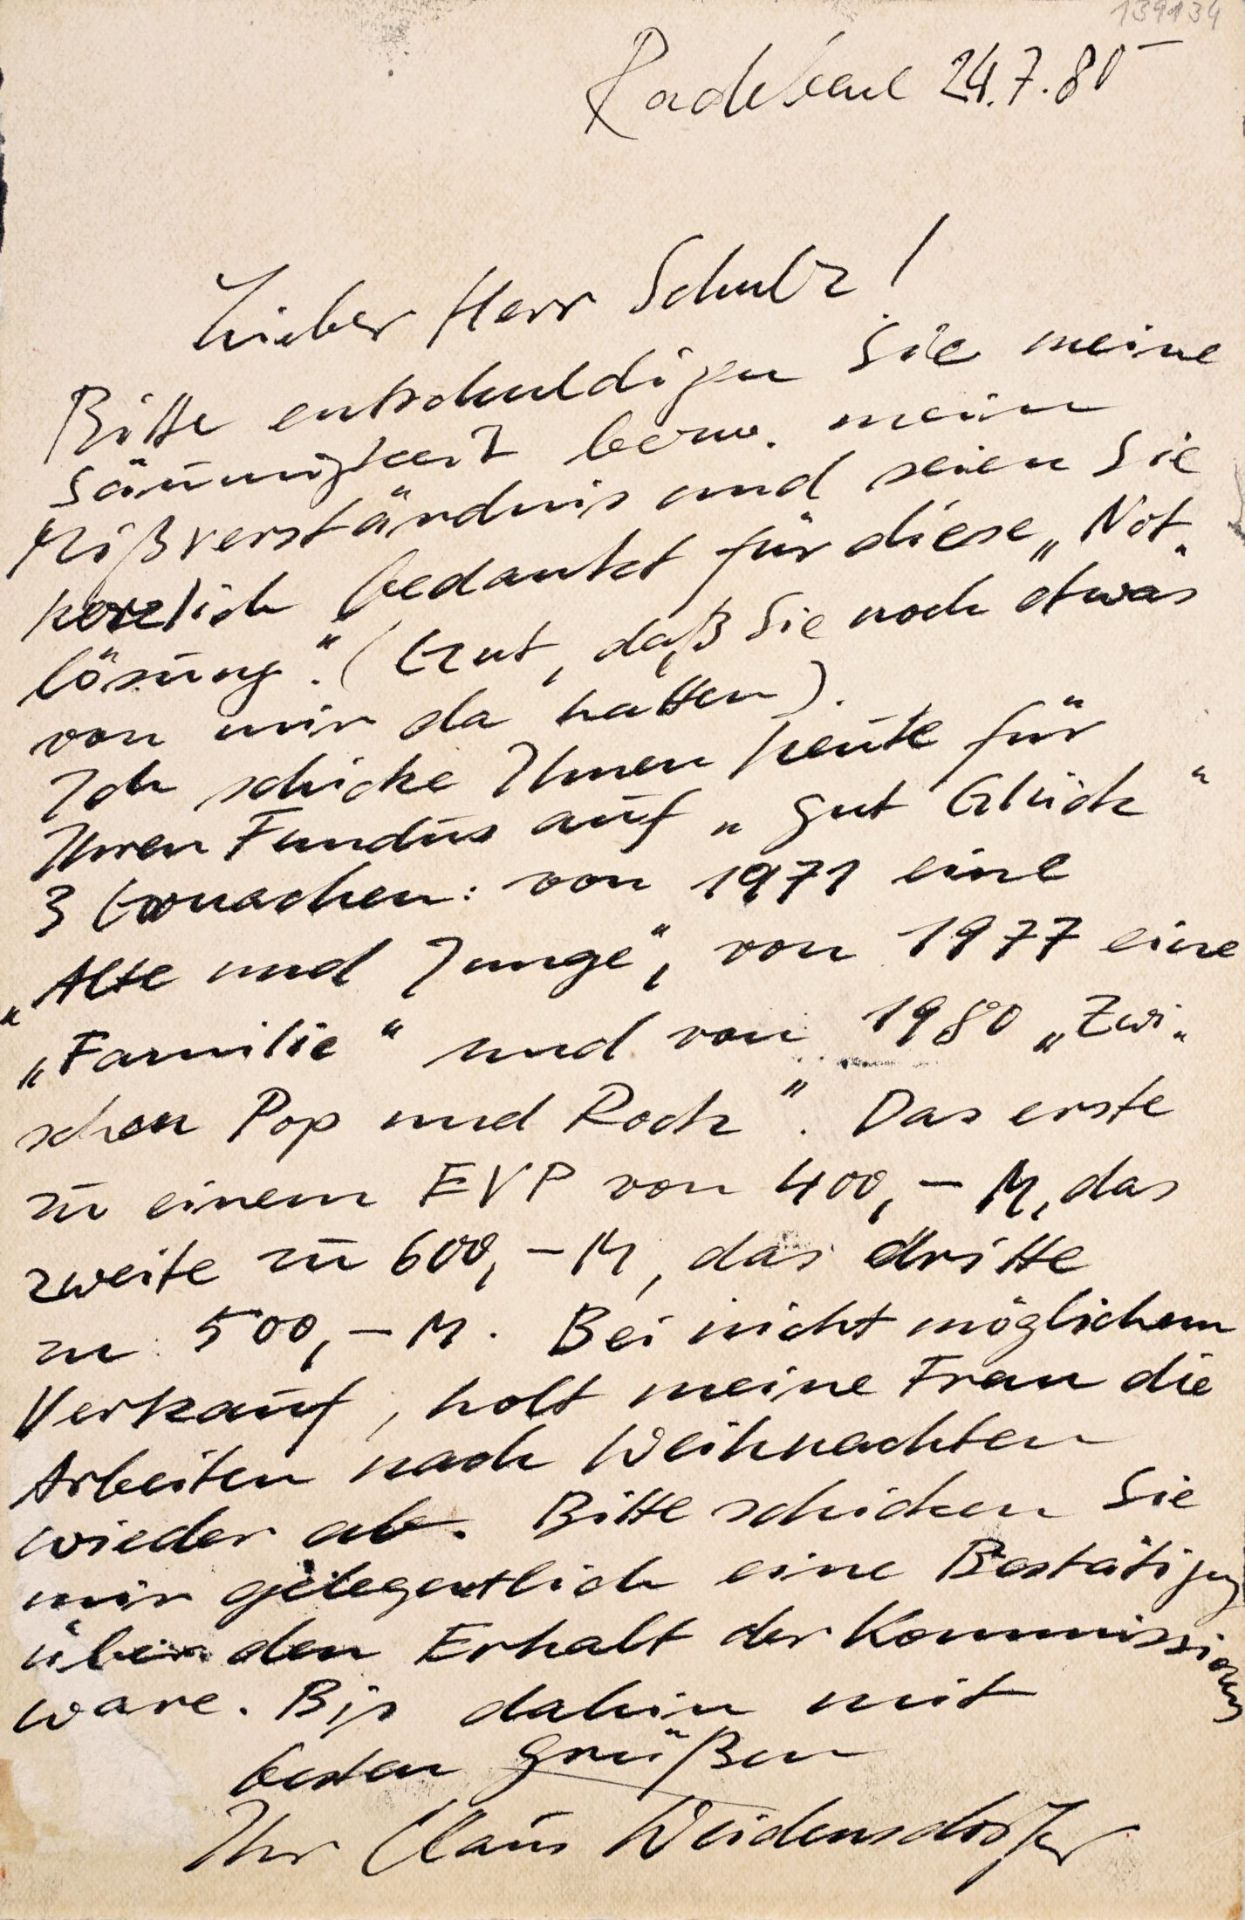 139134
Radebeul 24.7.80
Lieber Herr Schulz!
Bitte entschuldigen Sie meine
Säumigkeit bezw. mein
Mißverständnis und seien Sie
herzlich bedankt für diese „Not-
lösung". (Gut, daß Sie noch etwas
von mir da hatten).
Ich schicke Ihnen heute für
Ihren Fundus auf „gut Glück"
3 Gouachen: von 1971 eine
„Alte und Junge", von 1977 eine
„Familie" und von 1980 „Zwi-
schen Pop und Rock". Das erste
zu einem EVP von 400,- M, das
zweite zu 600,- M, das dritte
zu 500,- M. Bei nicht möglichem
Verkauf, holt meine Frau die
Arbeiten nach Weihnachten
wieder ab. Bitte schicken Sie
mir gelegentlich eine Bestätigung
über den Erhalt der Kommissions
ware. Bis dahin mit
besten Grüßen
Ihr Claus Weidensdorfer